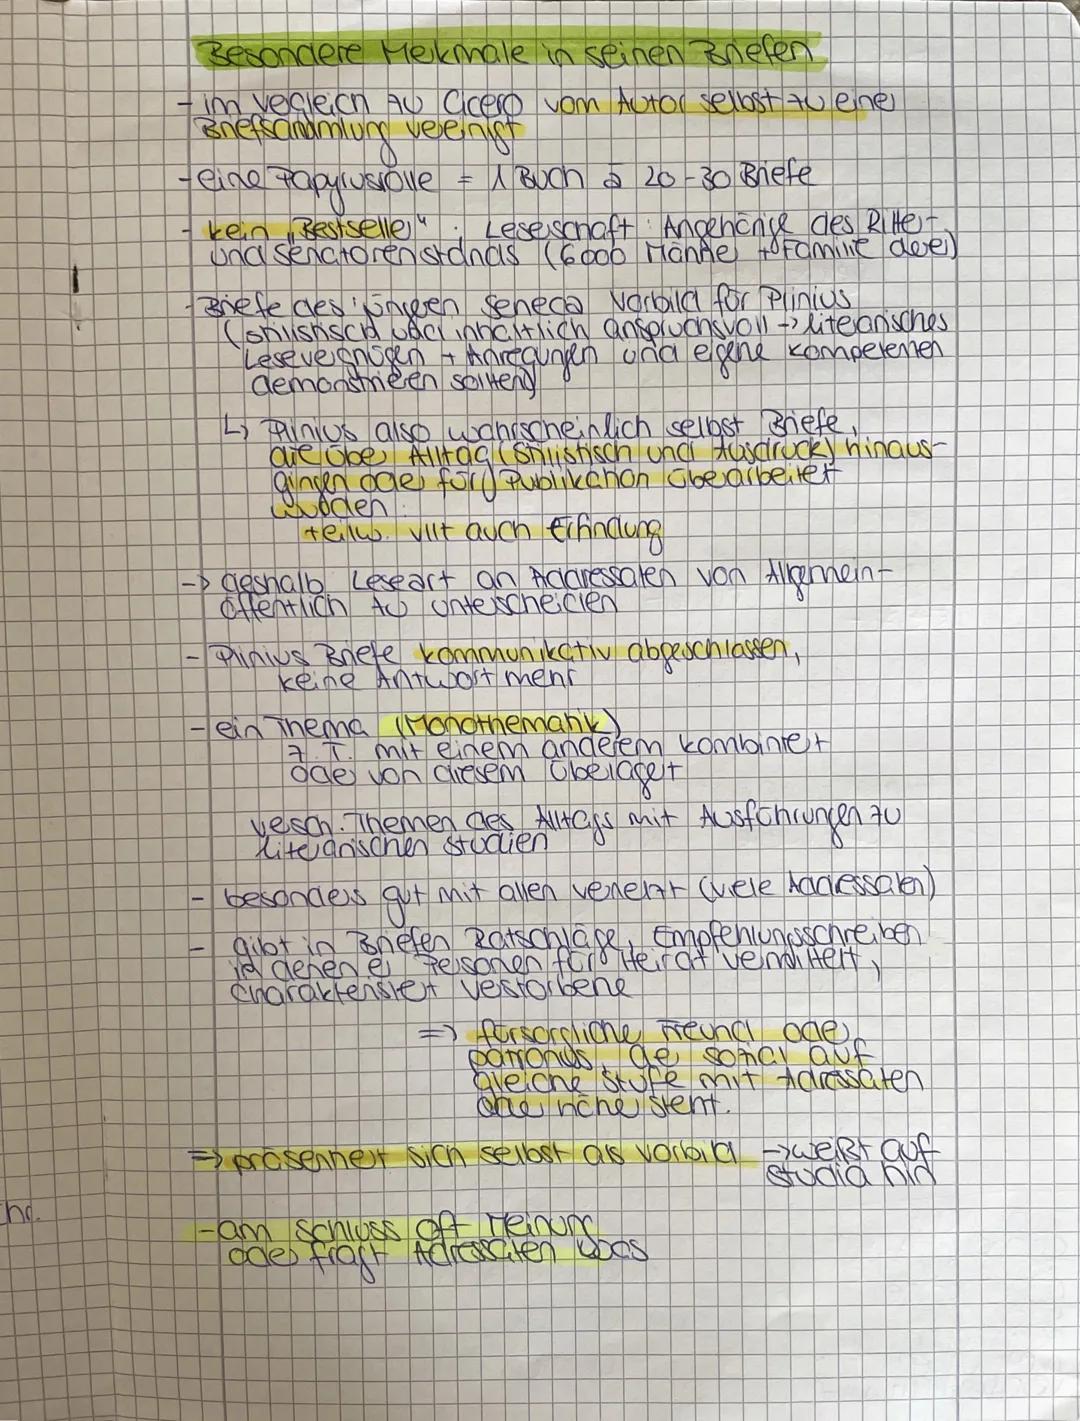 Besondere Merkmale in seinen Briefen
- im vergleich zu Cicero vom Autor selbst zu einer
Briefsammlung vereinigt
- eine Papyrusrolle = 1 Buch à 20-30 Briefe
- kein „Bestseller“: Leserschaft: Angehörige des Ritter-
und senatorenstands (6000 Männer + Familie derer)
- Briefe des jüngeren Seneca Vorbild für Plinius
(stilistisch und inhaltlich anspruchsvoll -> literarisches
Lesevergnügen + Anregungen und eigene kompetenzen
demonstrieren sollten)
↳ Plinius also wahrscheinlich selbst Briefe,
die über Alltag (stilistisch und Ausdruck) hinaus-
gingen oder für Publikation überarbeitet
wurden.
teilw. vllt auch Erfindung
-> deshalb Leseart an Addressaten von Allgemein-
öffentlich zu unterscheiden
- Plinius Briefe kommunikativ abgeschlossen,
keine Antwort mehr
- ein Thema (Monothematik)
z. T. mit einem anderem kombiniert
oder von diesem überlagert
versch. Themen des Alltags mit Ausführungen zu
literarischen studien
- besonders gut mit allen vernetzt (viele Addressaten)
- gibt in Briefen Ratschläge, Empfehlungsschreiben
in denen er Personen für Heirat vermittelt,
charakterisiert verstorbene
=> fürsorgliche Freund oder
patronus, der sozial auf
gleiche stufe mit Adressaten
oder höher steht.
=> präsentiert sich selbst als vorbild -> weißt auf
studia hin
- am schluss oft Meinung
oder fragt Adressaten was